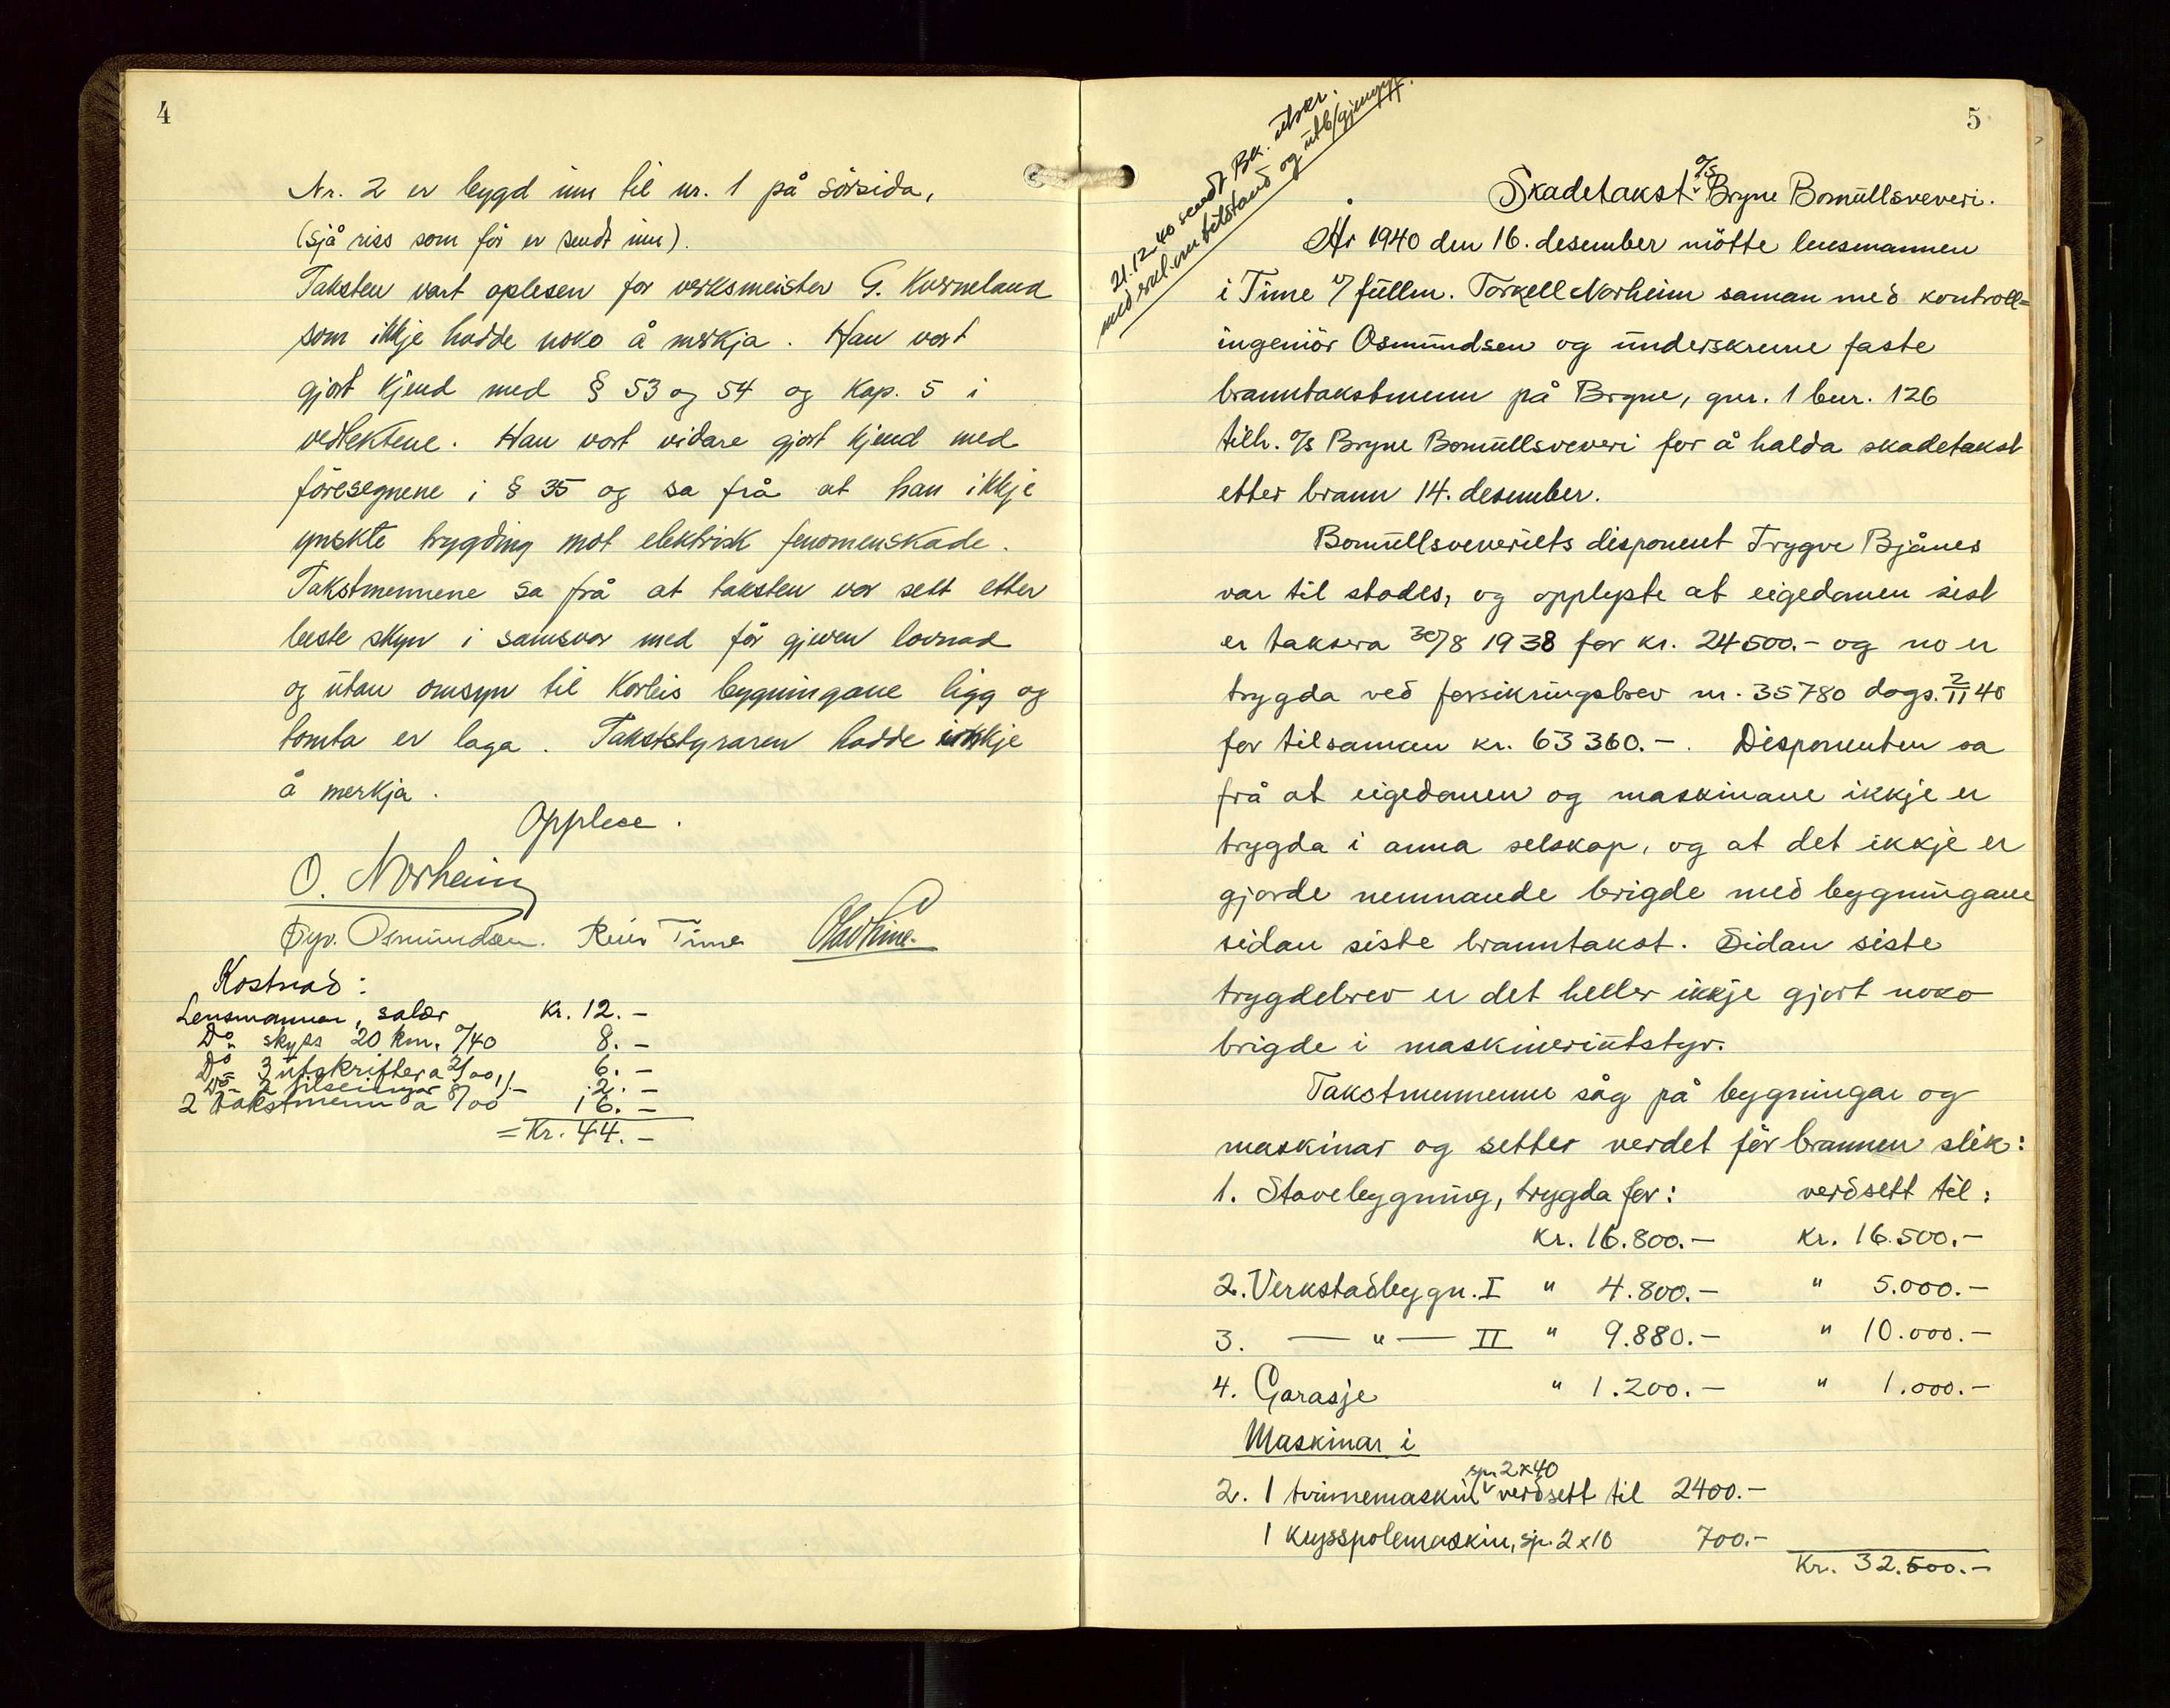 4
Nr. 2 er bygd inn til nr. 1 på sörsida,
(sjå riss som för er sendt inn).
Taksten vart oplesen for verksmeister G. Kverneland
som ikkje hadde noko å merkja. Han vart
gjort kjend med § 53 og 54 og kap. 5 i
vedtektene. Han vart vidare gjort kjend med
föresegnene i § 35 og sa frå at han ikkje
ynskte trygding mot elektrisk fenomenskade.
Takstmennene sa frå at taksten var sett etter
beste skyn i samsvar med för gjeven lovnad
og utan omsyn til korleis bygningane ligg og
tomta er laga. Takststyraren hadde ikkje
å merkja.
Opplese.
O. Norheim
Osmundsen. Reier Time Olav Time.
Kostnad:
Lensmannen, salær Kr. 12.-
Do skyss 20 km. 0/40 8.-
Do 3 utskrifter a 2/00 6.-
Do 2 tilseiingar 1/- 2.-
2 Takstmenn a 8/00 16.-
= Kr. 44.-
5
21.12.40 sendt Bk. utskr.
med skl. om tilstand og utb/gjenopp.
Skadetakst a/s Bryne Bomullsveveri.
År 1940 den 16. desember mötte lensmannen
i Time v/ fullm. Torkell Norheim saman med kontroll-
ingeniör Osmundsen og underskrevne faste
branntakstmenn på Bryne, gnr. 1 bnr. 126
tilh. a/s Bryne Bomullsveveri for å halda skadetakst
etter brann 14. desember.
Bomullsveveriets disponent Trygve Bjånes
var til stades, og opplyste at eigedomen sist
er taksera 30/8 1938 for kr. 24500.- og no er
trygda ved forsikringsbrev nr. 35780 dags. 2/11 40
for tilsaman kr. 63360.-. Disponenten sa
frå at eigedomen og maskinane ikkje er
trygda i anna selskap, og at det ikkje er
gjorde nemnande brigde med bygningane
sidan siste branntakst. Sidan siste
trygdebrev er det heller ikkje gjort noko
brigde i maskineriutstyr.
Takstmennene såg på bygningar og
maskinar og setter verdet för brannen slik:
1. Stovebygning, trygda for: verdsett til:
Kr. 16.800.- Kr. 16.500.-
2. Verkstadbygn. I " 4.800.- " 5.000.-
3. — " — II " 9.880.- " 10.000.-
4. Garasje " 1.200.- " 1.000.-
Maskinar i
2. 1 tvinnemaskin sp. 2x40 verdsett til 2400.-
1 krysspolemaskin, sp. 2x10 700.-
Kr. 32.500.-